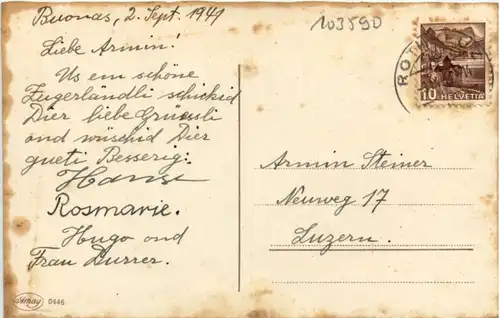 Buonas, 2. Sept. 1941
Liebe Armin!
Us em schöne
Zugerländli schickid
Dier liebe Grüessli
ond wüschid Dier
gueti Besserig:
Hans
Rosmarie.
Hugo ond
Frau Durrer.
103590
ROT
10 HELVETIA
Armin Steiner
Neuweg 17
Luzern.
0446